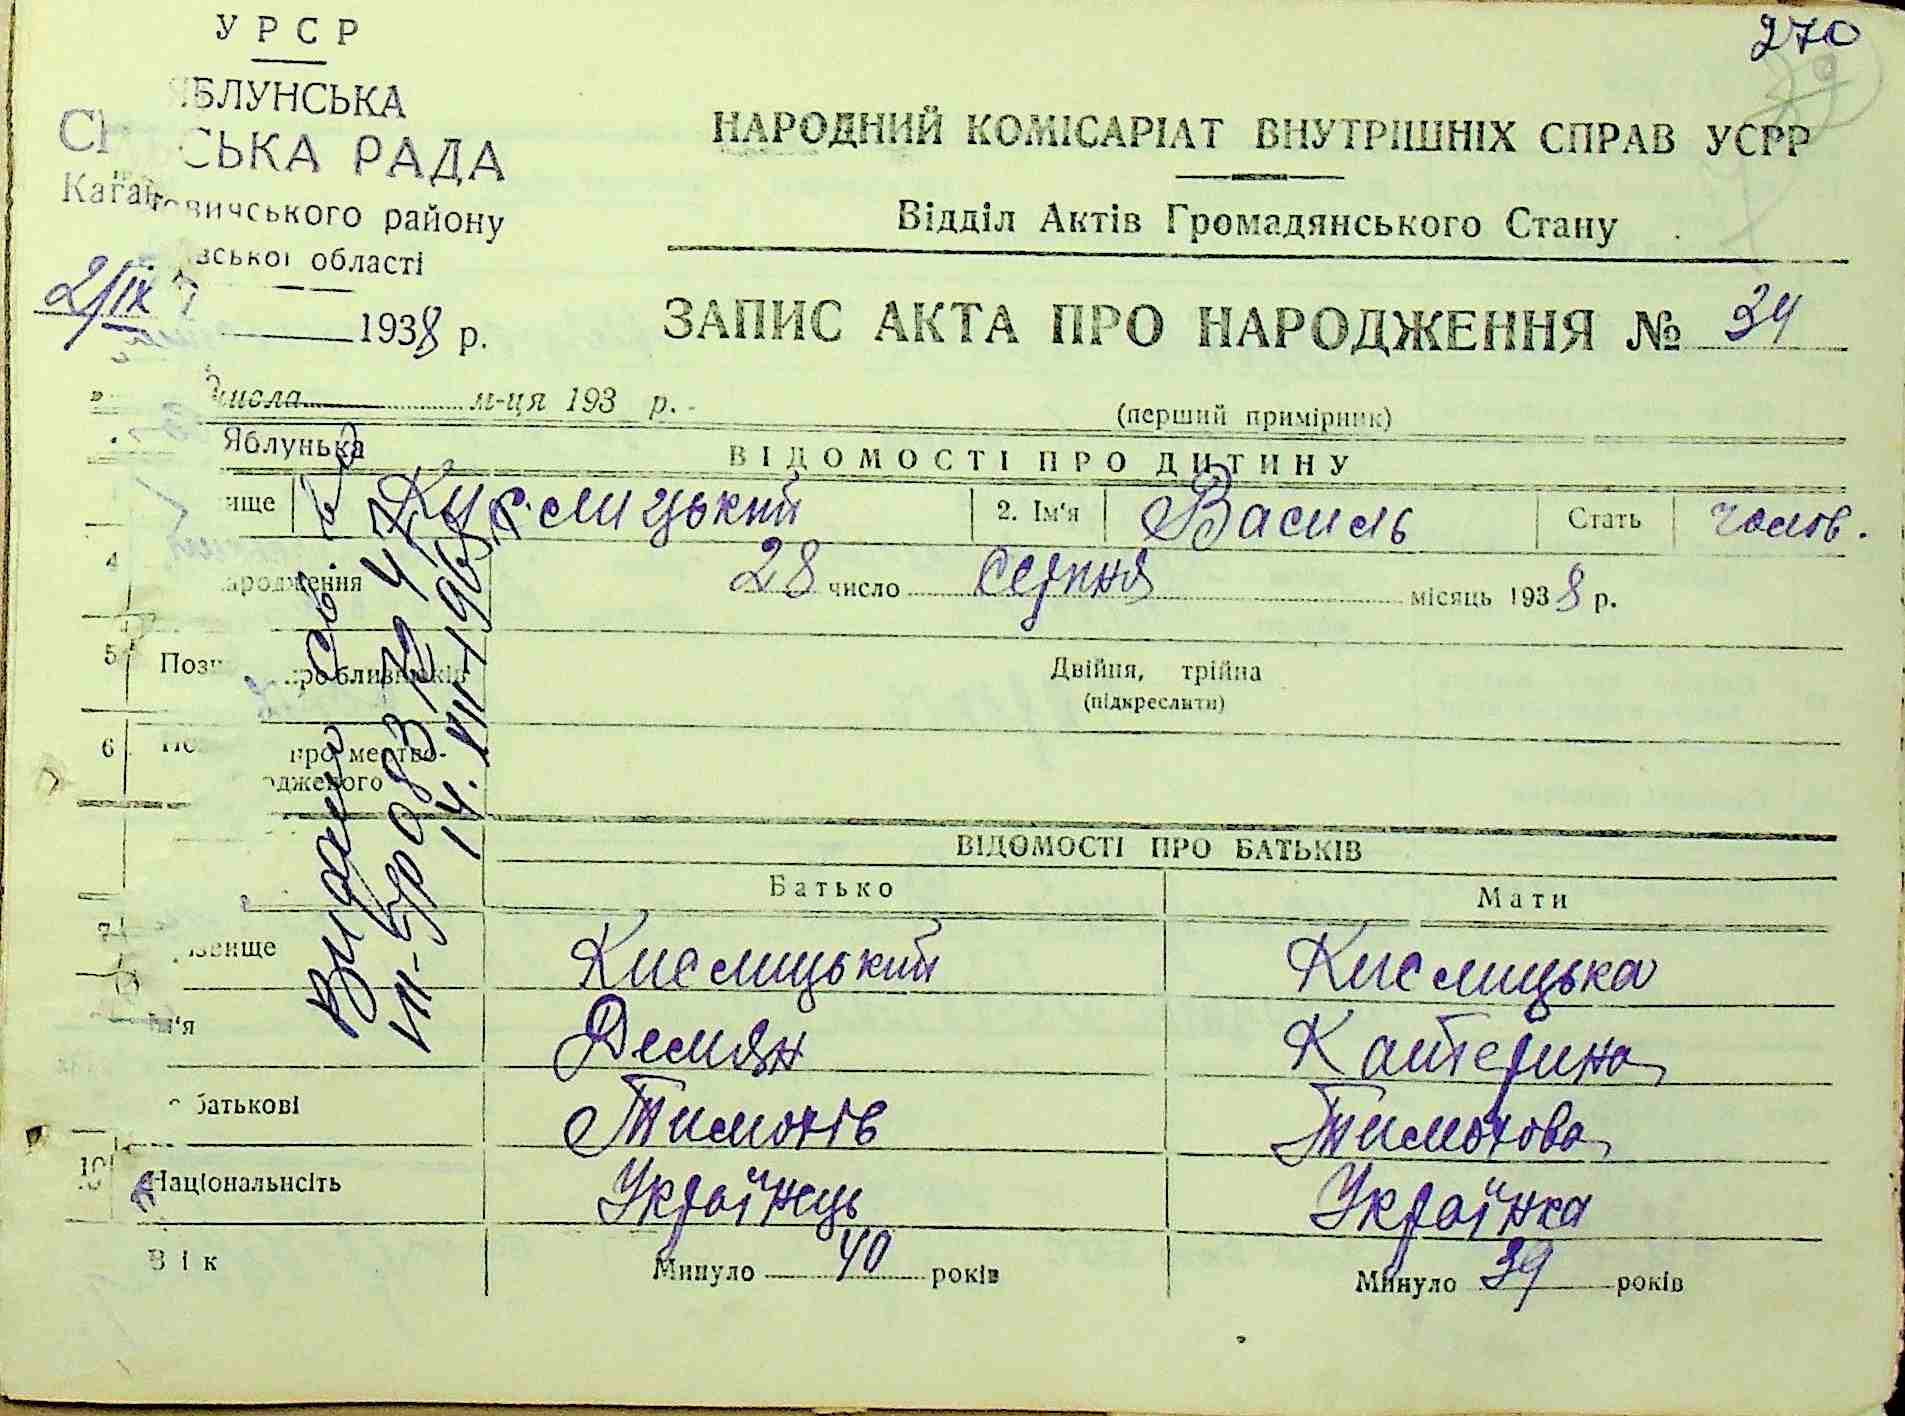 270
39
У Р С Р
ЯБЛУНСЬКА
СІ СЬКА РАДА
Кагановичського району
вської області
2/ІХ 1938 р.
НАРОДНИЙ КОМІСАРІАТ ВНУТРІШНІХ СПРАВ УСРР
Відділ Актів Громадянського Стану
ЗАПИС АКТА ПРО НАРОДЖЕННЯ № 34
числа м-ця 193 р.
(перший примірник)
Яблунька
ВІДОМОСТІ ПРО ДИТИНУ
ище Кислицький 2. Ім'я Василь Стать чолов.
4 ародження 28 число серпня місяць 1938 р.
5 Позн про близнюків Двійня, трійна
(підкреслити)
6 про мертво-
одженого
Видано св. в
14.VIII-1968 р.
ВІДОМОСТІ ПРО БАТЬКІВ
Батько Мати
7 звище Кислицький Кислицька
Ім'я Демян Катерина
батькові Тимохів Тимохова
10 Національнсіть Українець Українка
Вік Минуло 40 років Минуло 39 років